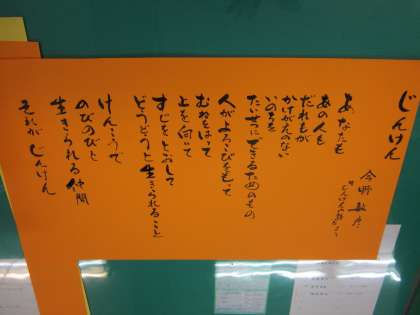 じんけん
今野敏彦
「じんけんの詩」より
あなたも
あの人も
だれもが
かけがえのない
いのちを
たいせつにできるためのもの
人がよろこびをもって
むねをはって
上を向いて
すじをとおして
どうどうと生きられること
けんこうで
のびのびと
生きられる仲間
それが じんけん